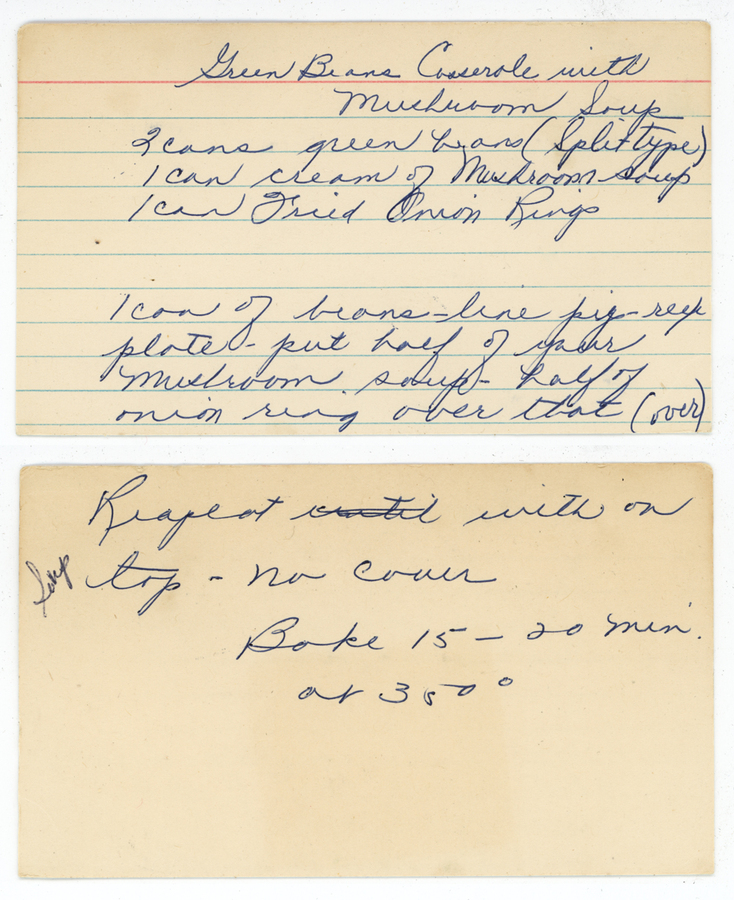 Green Beans Casserole with
Mushroom Soup
2 cans green beans (Split type)
1 can cream of Mushroom soup
1 can Fried Onion Rings
1 can of beans - line pig-rex
plate - put half of your
Mushroom soup - half of
onion ring over that (over)
Reapeat until with on
Soup top - no cover
Bake 15 - 20 min.
at 350°